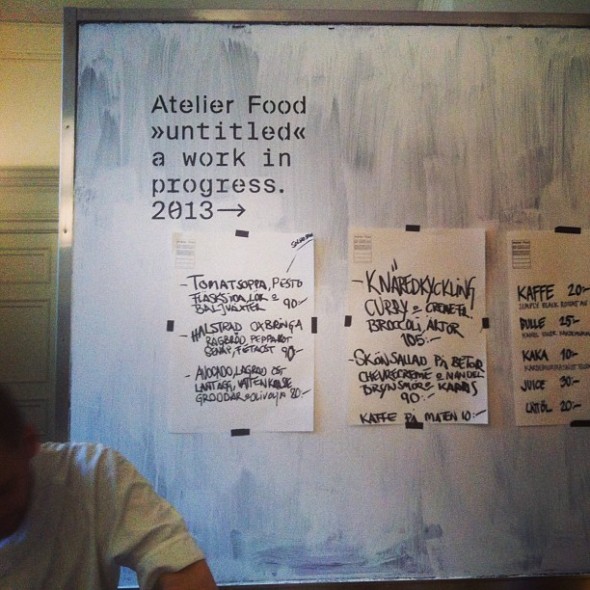 Atelier Food
»untitled«
a work in
progress.
2013→
- TOMATSOPPA, PESTO
90:-
BALJVÄXTER
- HALSTRAD OXBRINGA
RÅGBRÖD, PEPPARROT
SENAP, FETAOST 90:-
- AVOCADO, LAGRAD OST
LANTÄGG, VATTENKRASSE
GRODDAR & OLIVOLJA 80:-
- KNÄREDKYCKLING
CURRY &
BROCCOLI, ÄRTOR
105:-
- SKÖNSALLAD PÅ BETOR
CHEVRECREME & MANDEL
BRYNSMÖR &
90:-
KAFFE PÅ MATEN 10:-
KAFFE 20:-
BULLE 25:-
KAKA 10:-
JUICE 30:-
LÄTTÖL 20:-